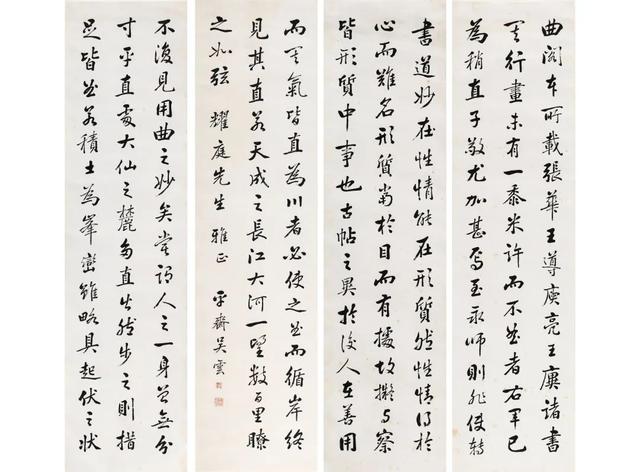 書道妙在性情能在形質然性情得於
心而難名形質當於目而有據故擬與察
皆形質中事也古帖之異於後人在善用
曲閣本所載張華王導庾亮王廙諸書
其行畫未有一黍米許而不曲者右軍已
為稍直子敬尤加甚焉至永師則非使轉
不復見用曲之妙矣嘗謂人之一身曾無分
寸平直處大山之麓多直出然步之則措
足皆曲若積土為峯巒雖略具起伏之狀
而其氣皆直為川者必使之曲而循岸終
見其直若天成之長江大河一望數百里瞭
之如弦 耀庭先生雅正 平齋吳雲